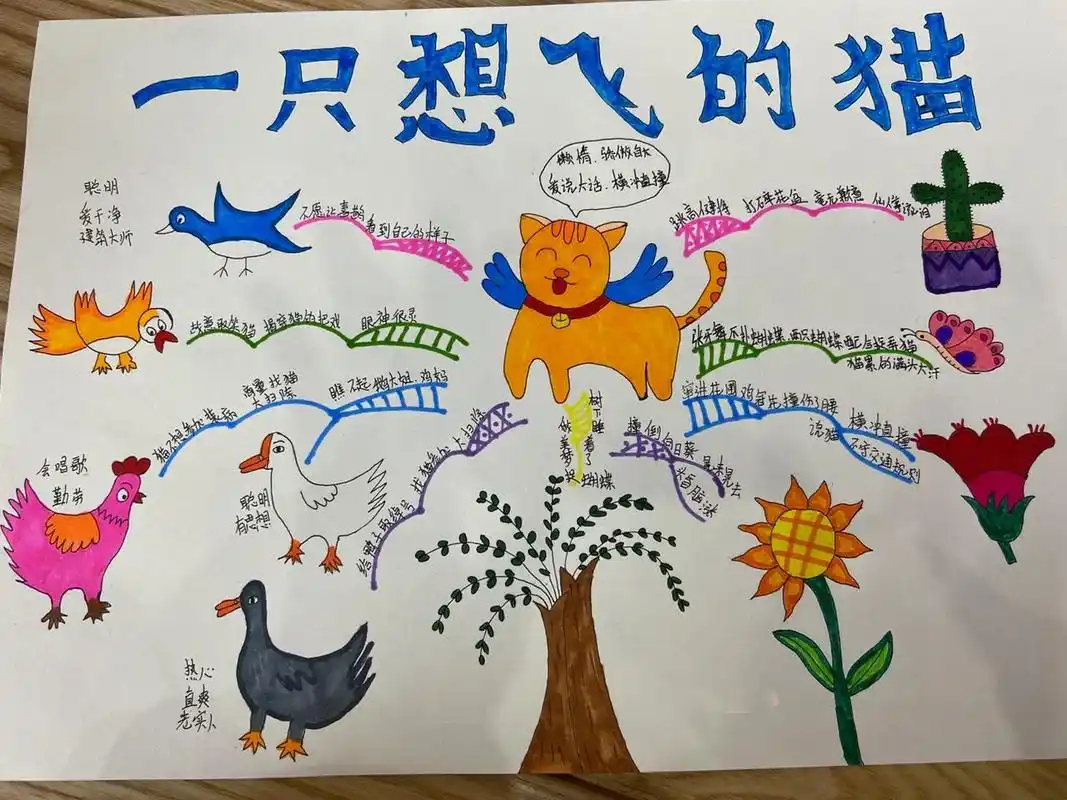 一只想飞的猫
懒惰、骄傲自大
爱说大话、横冲直撞
聪明
爱干净
建筑大师
不愿让喜鹊看到自己的样子
跳高碰掉 打碎花盆 毫无歉意
故意取笑猫 揭穿猫的把戏 眼神很灵
张牙舞爪扑蝴蝶 两只蝴蝶配合捉弄猫
猫累的满头大汗
商量找猫
大扫除
瞧不起鸭大姐、鸡妈
猫不想参加装病
窜进花园 鸡冠花撞伤了腰
说猫
横冲直撞
不守交通规则
会唱歌
勤劳
聪明
有思想
给鸭子取绰号 找猫参加大扫除
树下睡着了
做美梦捉蝴蝶
撞倒向日葵 晃来晃去
热心
直爽
老实